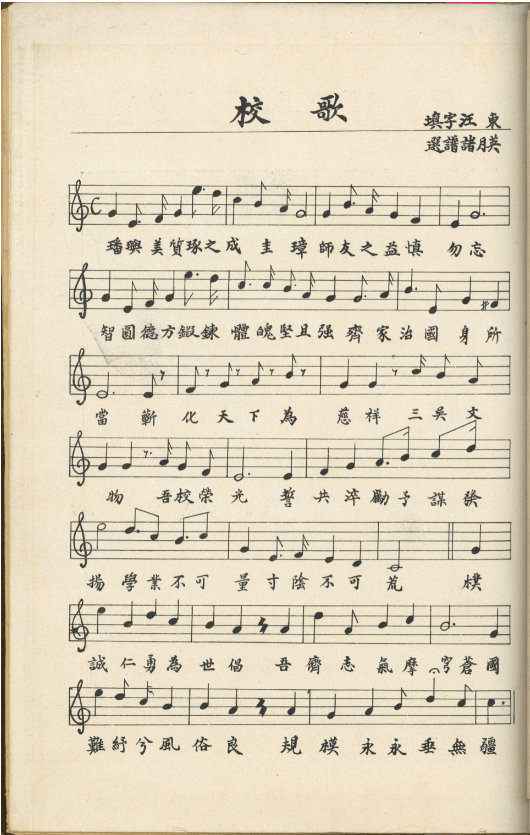 校歌
汪東填字
諸月英選譜
璠璵美質琢之成圭璋師友之益慎勿忘
智圓德方鍛鍊體魄堅且强齊家治國身所
當蘄化天下為慈祥三吳文
物吾校榮光誓共淬勵予謀發
揚學業不可量寸陰不可荒樸
誠仁勇為世倡吾儕志氣摩穹蒼國
難紓兮風俗良規模永永垂無疆